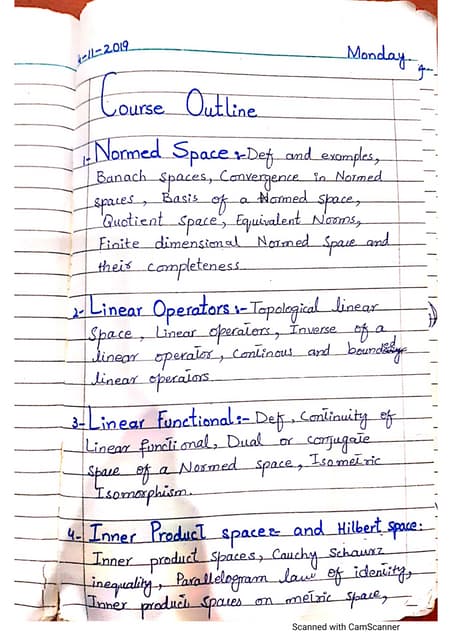 4-11-2019 Monday
Course Outline
1- Normed Space :- Def and examples,
Banach spaces, Convergence in Normed
spaces, Basis of a Normed space,
Quotient Space, Equivalent Norms,
Finite dimensional Normed Space and
their completeness
2- Linear Operators :- Topological linear
Space, Linear operators, Inverse of a
linear operator, Continous and bounded
linear operators
3- Linear Functional:- Def, Continuity of
Linear functional, Dual or conjugate
Space of a Normed space, Isometric
Isomorphism.
4- Inner Product spaces and Hilbert space:
Inner product spaces, Cauchy Schawrz
inequality, Parallelogram law of identity,
Inner product spaces on metric space,
Scanned with CamScanner